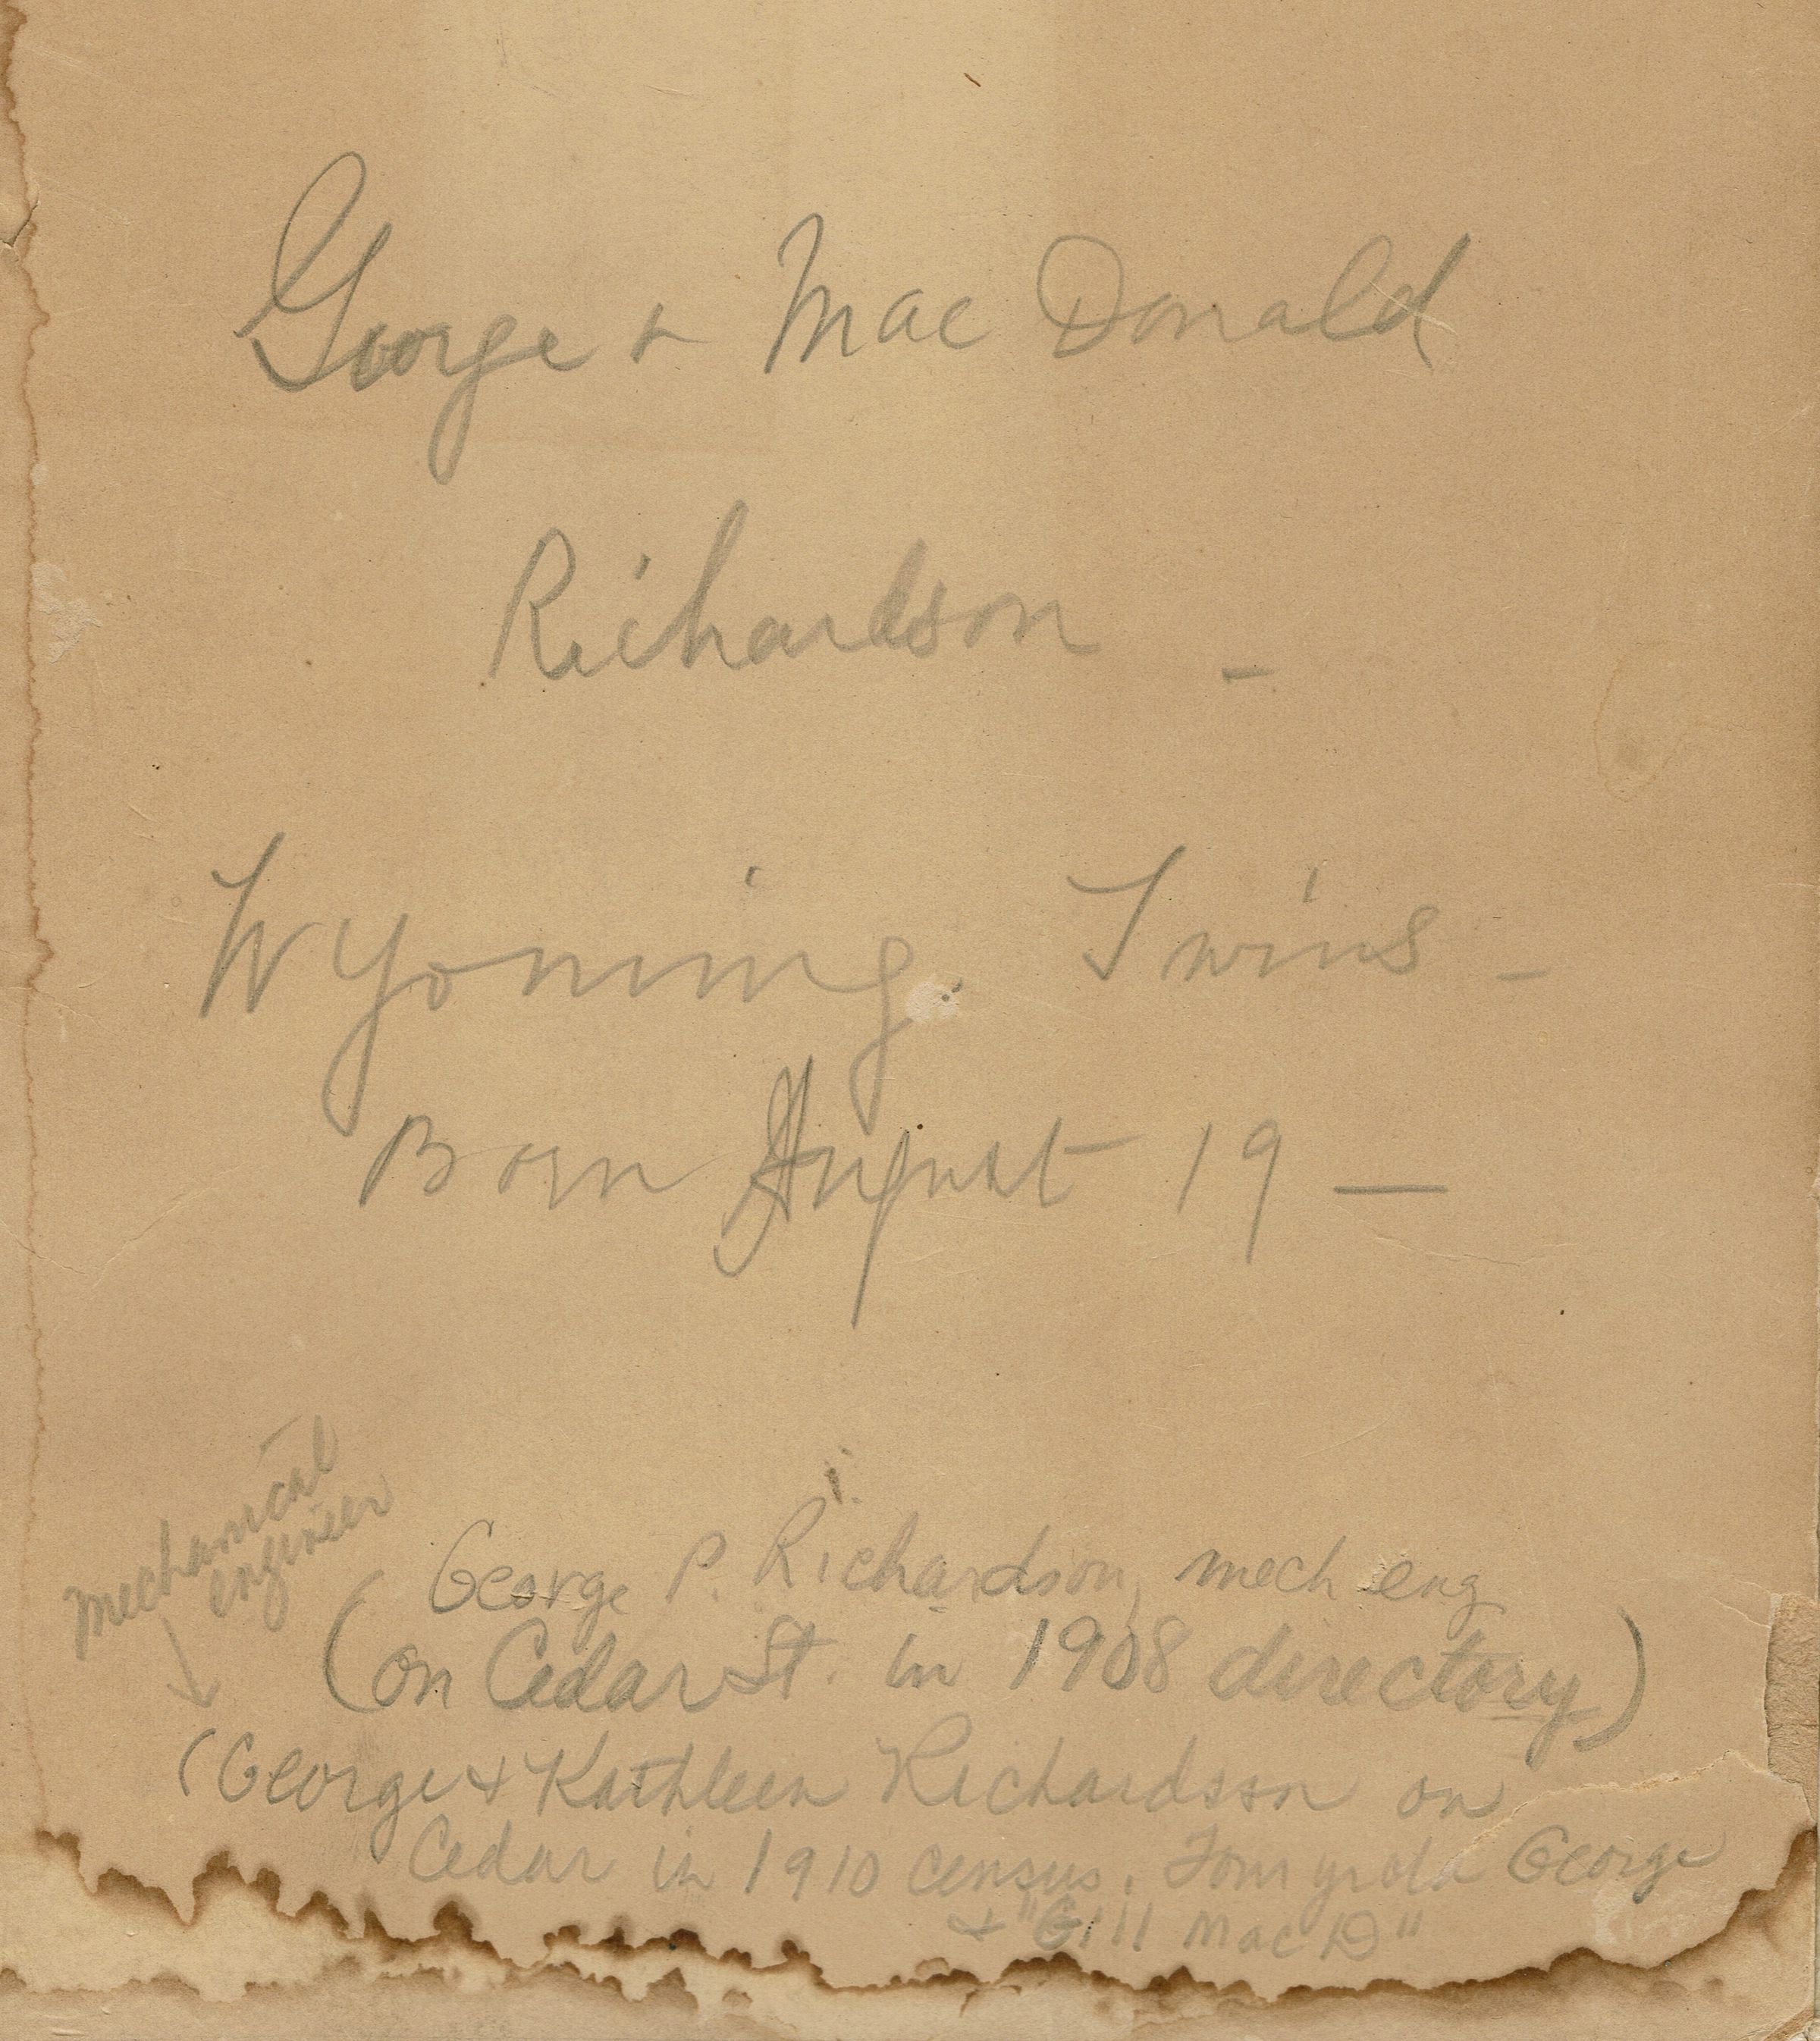 George + Mac Donald
Richardson -
Wyoming Twins -
Born August 19 —
mechanical
engineer
George P. Richardson, mech eng
(on Cedar St. in 1908 directory)
(George + Kathleen Richardson on
Cedar in 1910 census. Four yr old George
+ "Gill Mac D"